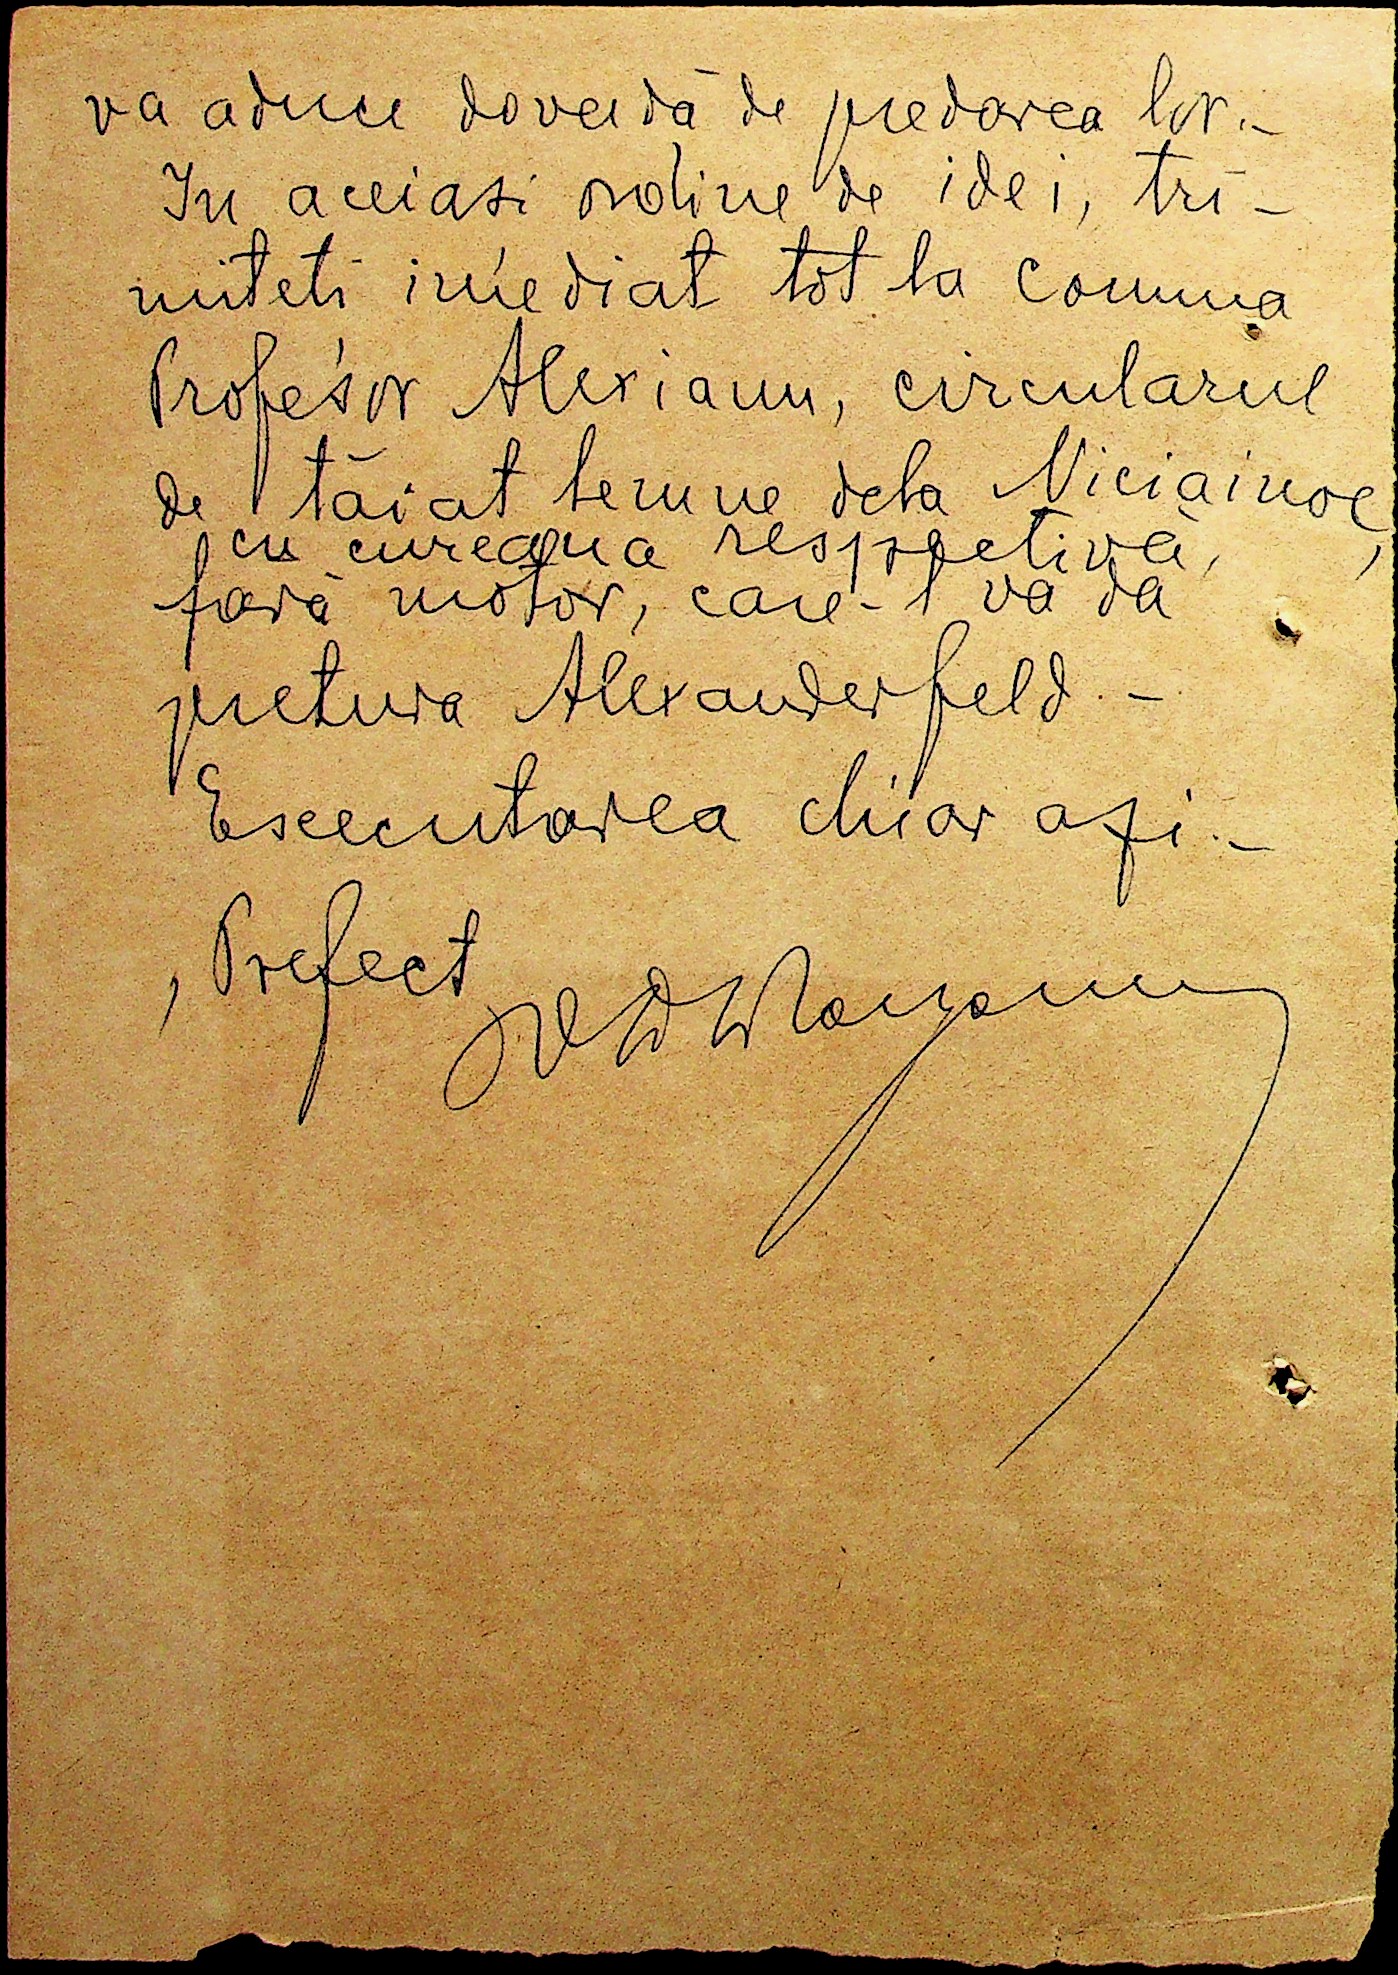 va aduce dovada de predarea lor.-
In aceiasi ordine de idei, tri-
miteti imediat tot la comuna
Profesor Alexianu, circularul
de tăiat lemne dela Niciainoe,
cu cureaua respectivă,
fară motor, care-l va da
pretura Alexanderfeld.-
Executarea chiar azi.-
Prefect